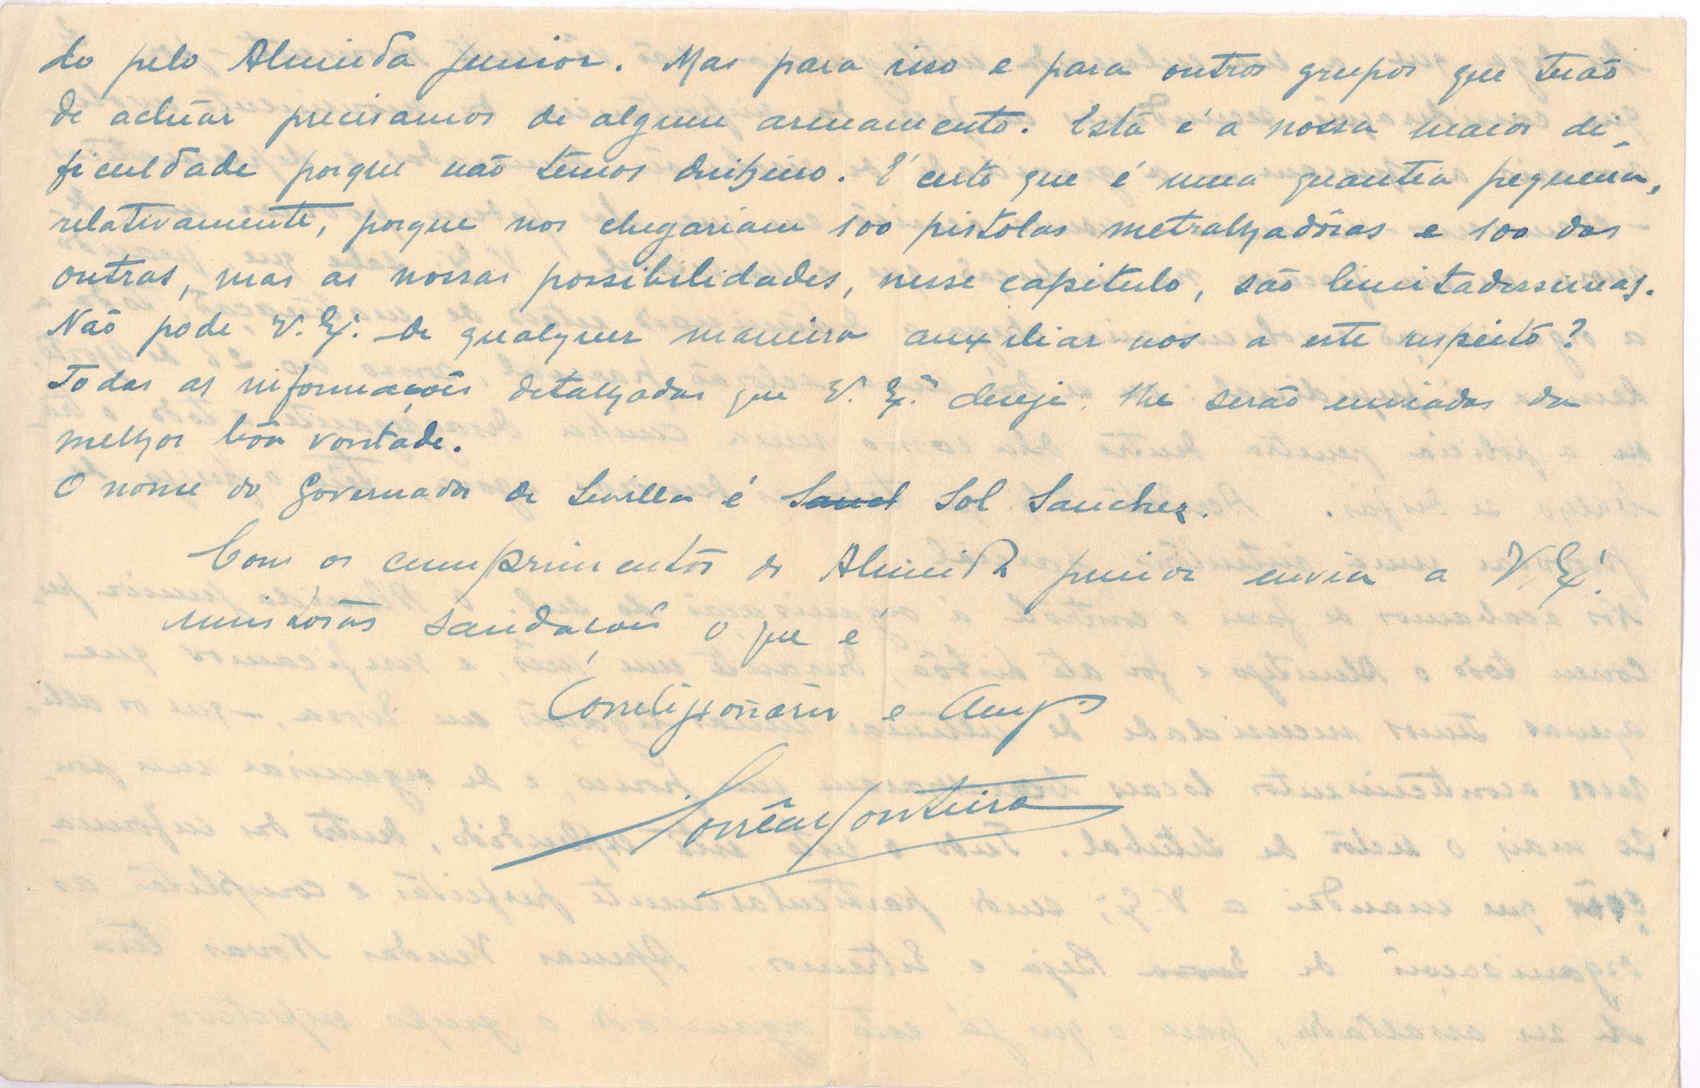 do pelo Almeida Junior. Mas para isso e para outros grupos que terão
de actuar precisamos de algum armamento. Esta é a nossa maior di-
ficuldade porque não temos dinheiro. É certo que é uma quantia pequena,
relativamente, porque nos chegariam 100 pistolas metralhadôras e 100 das
outras, mas as nossas possibilidades, nesse capitulo, são limitadissimas.
Não pode V. Exª. de qualquer maneira auxiliar nos a este respeito?
Todas as informações detalhadas que V. Exª. deseje lhe serão enviadas da
melhor bôa vontade.
O nome do Governador de Sevilla é Sol Sanchez.
Com os cumprimentos de Almeida Junior envia a V. Exª.
saudações o que é
Correligionário e Amgº